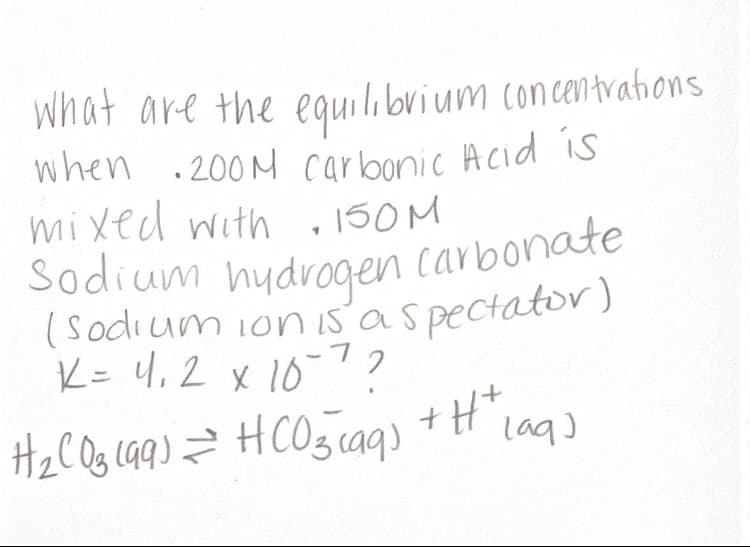 What are the equilibrium concentrations
when .200M Carbonic Acid is
mixed with .150M
Sodium hydrogen carbonate
(sodium ion is a spectator)
K = 4.2 x 10⁻⁷ ?
H₂CO₃(aq) ⇌ HCO₃⁻(aq) + H⁺(aq)